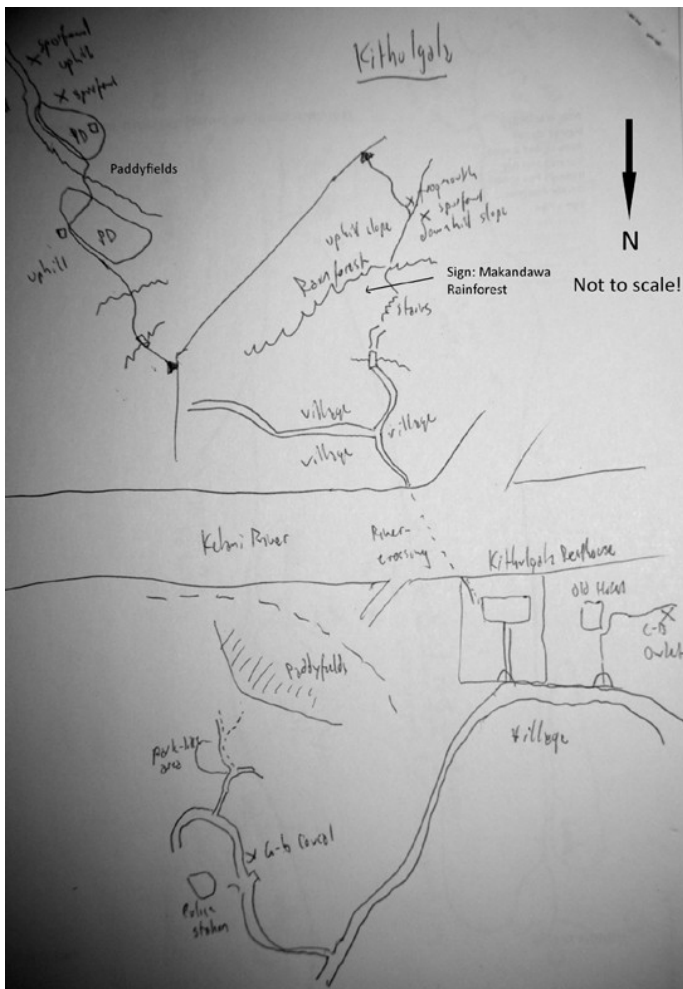 Kithulgala
X spurfowl
uphill
X spurfowl
PD
Paddyfields
PD
uphill
X frogmouth
X spurfowl
downhill slope
uphill slope
Rainforest
Sign: Makandawa
Rainforest
stairs
N
Not to scale!
village
village
village
Kelani River
River-
crossing
Kithulgala Resthouse
Old Hotel
C-B
Owlet
Paddyfields
Village
Park-like
area
X G-b Coucal
Police
station